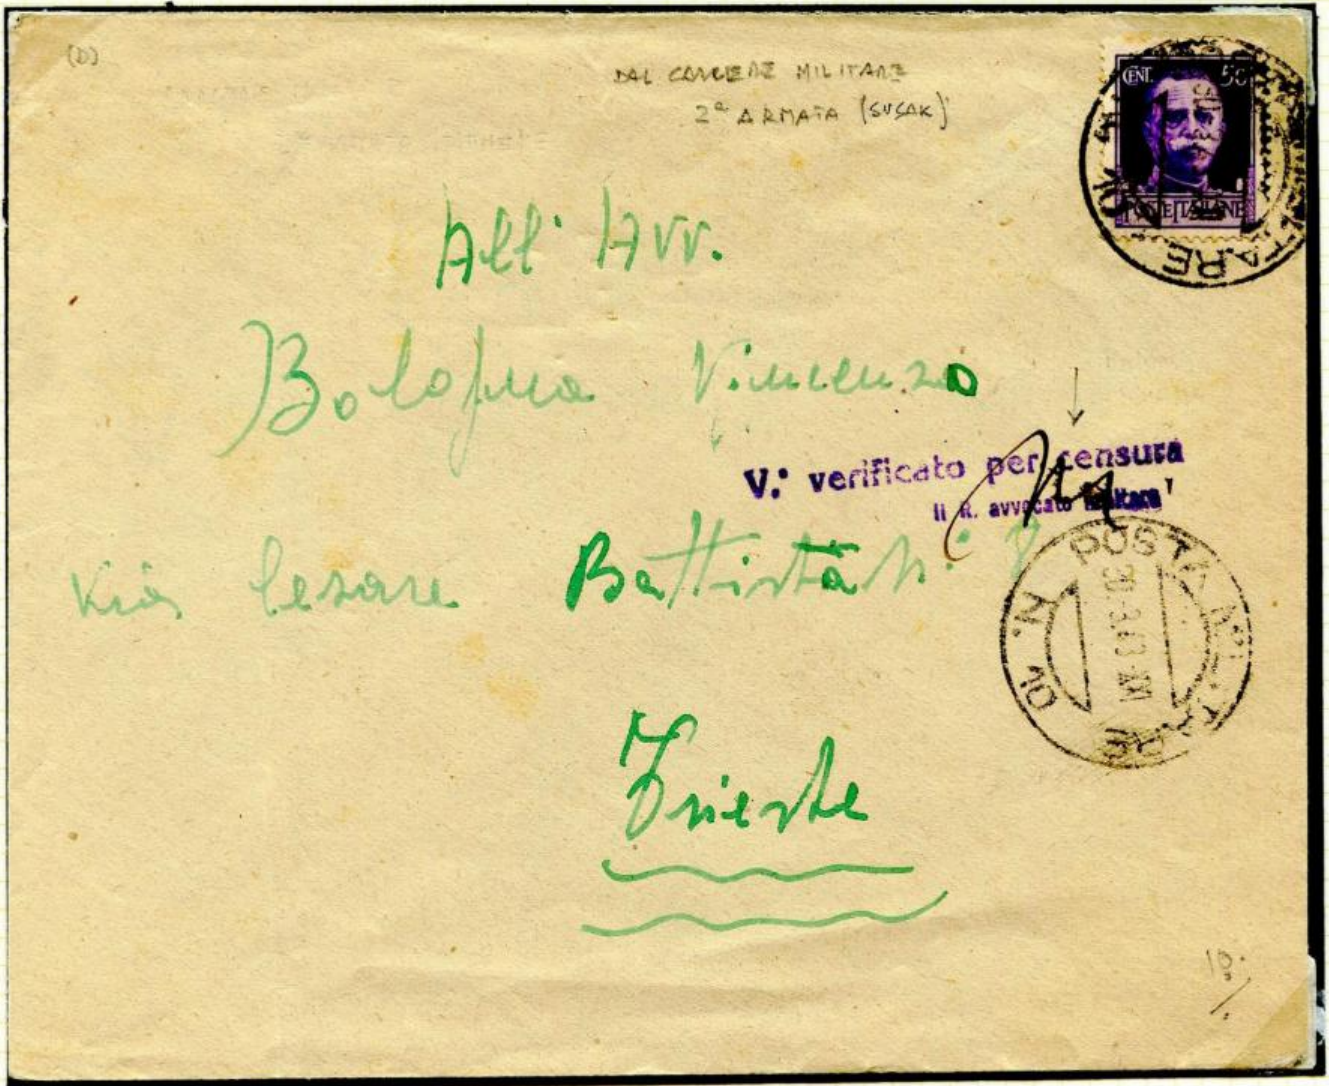 (D)
DAL CARCERE MILITARE
2ª ARMATA (SUSAK)
CENT. 50
POSTE ITALIANE
All' Avv.
Bologna Vincenzo
V.° verificato per censura
Il R. avvocato militare
Via Cesare Battista N.
POSTA MILITARE N. 10
30.3.43.XXI
Trieste
10.